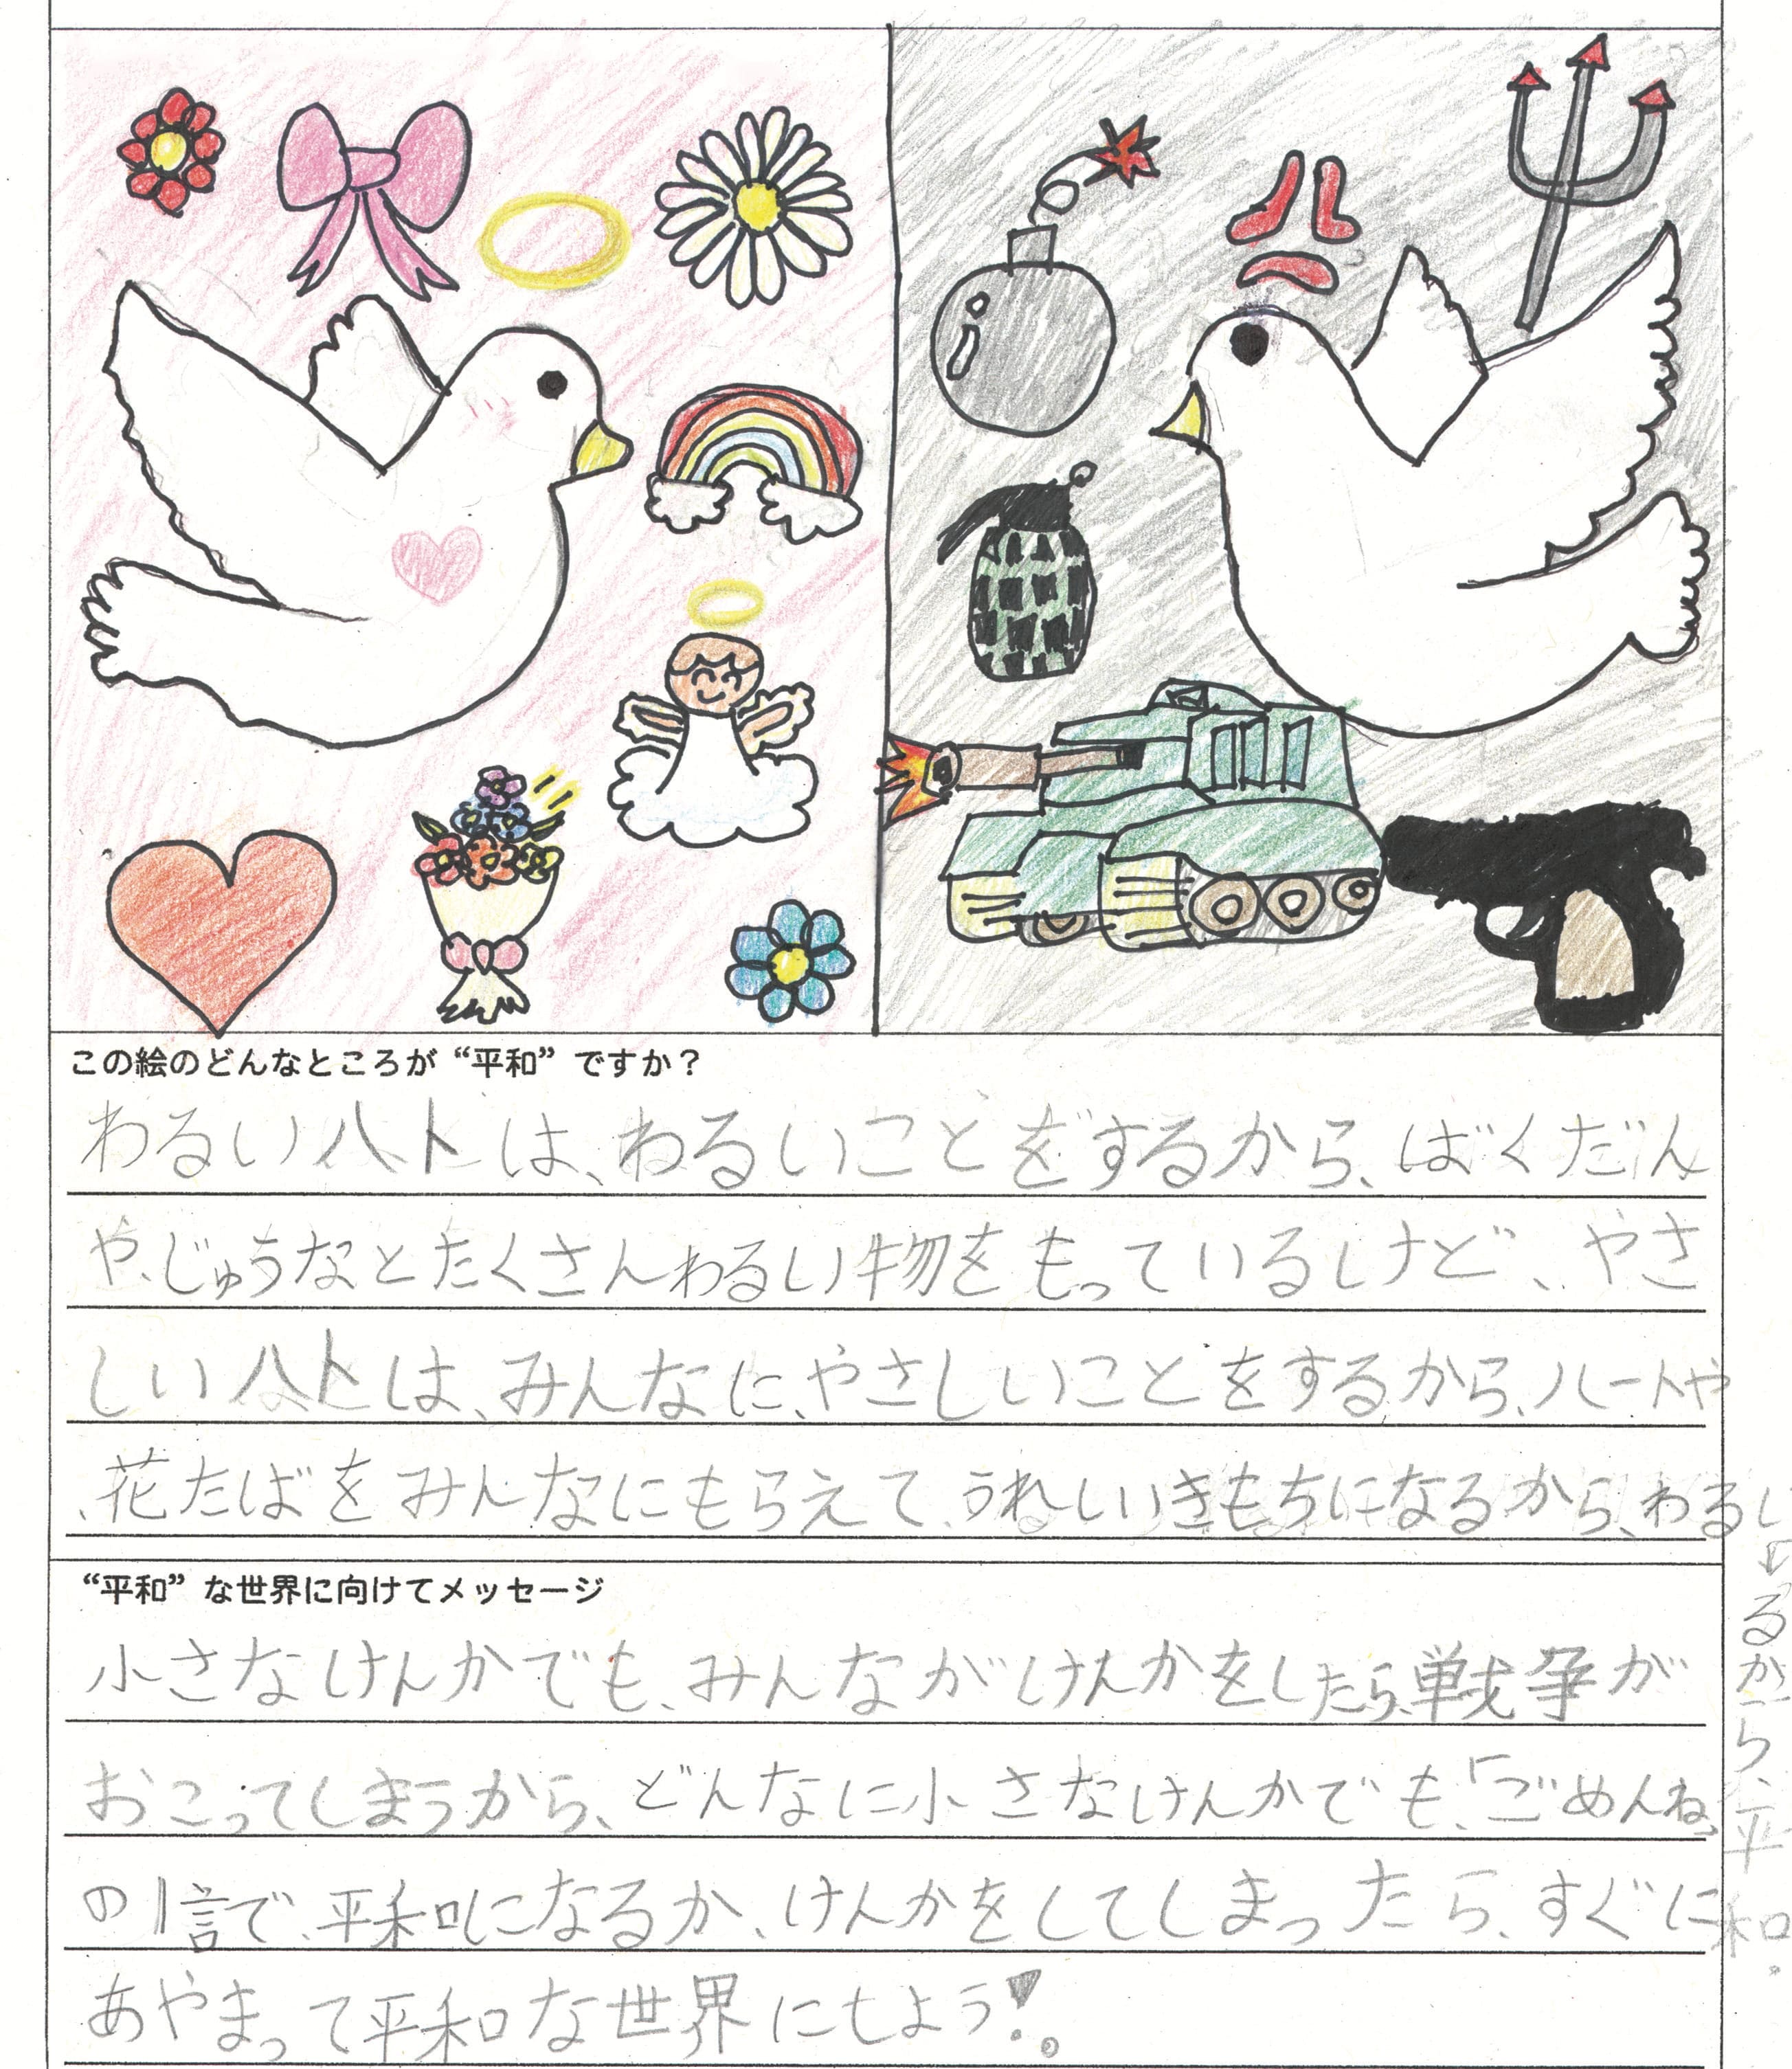 この絵のどんなところが“平和”ですか？
わるいハトは、わるいことをするから、ばくだん
や、じゅうなとたくさんわるい物をもっているけど、やさ
しいハトは、みんなに、やさしいことをするから、ハートや
、花たばをみんなにもらえて、うれしいきもちになるから、わるい
るから、平和.
“平和”な世界に向けてメッセージ
小さなけんかでも、みんながけんかをしたら、戦争が
おこってしまうから、どんなに小さなけんかでも、「ごめんね」
の1言で、平和になるか、けんかをしてしまったら、すぐに
あやまって平和な世界にしよう!。